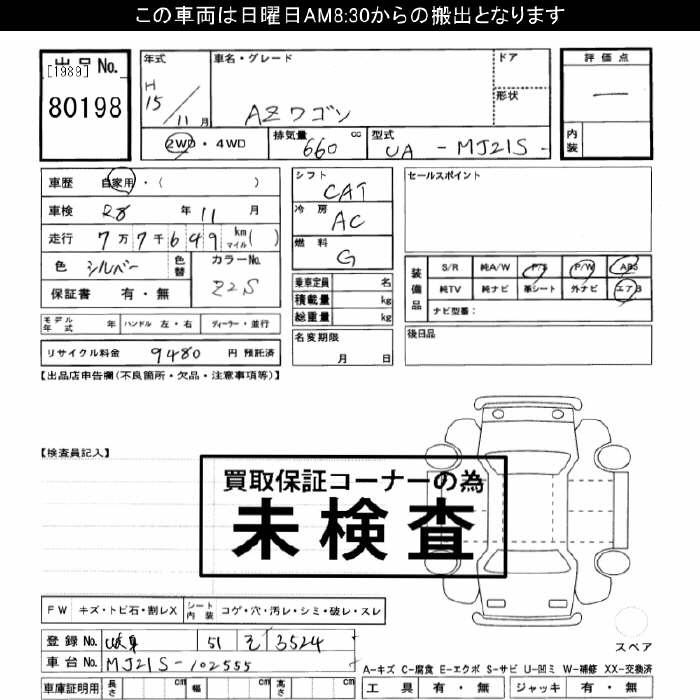 この車両は日曜日AM8:30からの搬出となります
出品 No.
[1989]
80198
年式
H
15/11月
車名・グレード
AZワゴン
ドア
形状
評価点
—
内装
2WD・4WD
排気量 660 cc
型式 UA - MJ21S -
車歴 自家用・( )
車検 R8 年 11 月
走行 7万7千649 km マイル( )
色 シルバー 色替
カラーNo. Z2S
保証書 有・無
シフト CAT
冷房 AC
燃料 G
乗車定員 名
積載量 kg
総重量 kg
名変期限
月 日
セールスポイント
装備品
S/R 純A/W P/S P/W ABS
純TV 純ナビ 革シート 外ナビ エアB
ナビ型番:
後日品
モデル年式 年 ハンドル 左・右 ディーラー・並行
リサイクル料金 9480 円 預託済
【出品店申告欄(不良箇所・欠品・注意事項等)】
【検査員記入】
買取保証コーナーの為
未検査
FW キズ・トビ石・割レX シート内装 コゲ・穴・汚レ・シミ・破レ・スレ
スペア
登録No. 岐阜 51 そ 3524
車台No. MJ21S-102555
A-キズ C-腐食 E-エクボ S-サビ U-凹ミ W-補修 XX-交換済
車庫証明用 長さ cm 幅 cm 高さ cm
工具 有・無 ジャッキ 有・無